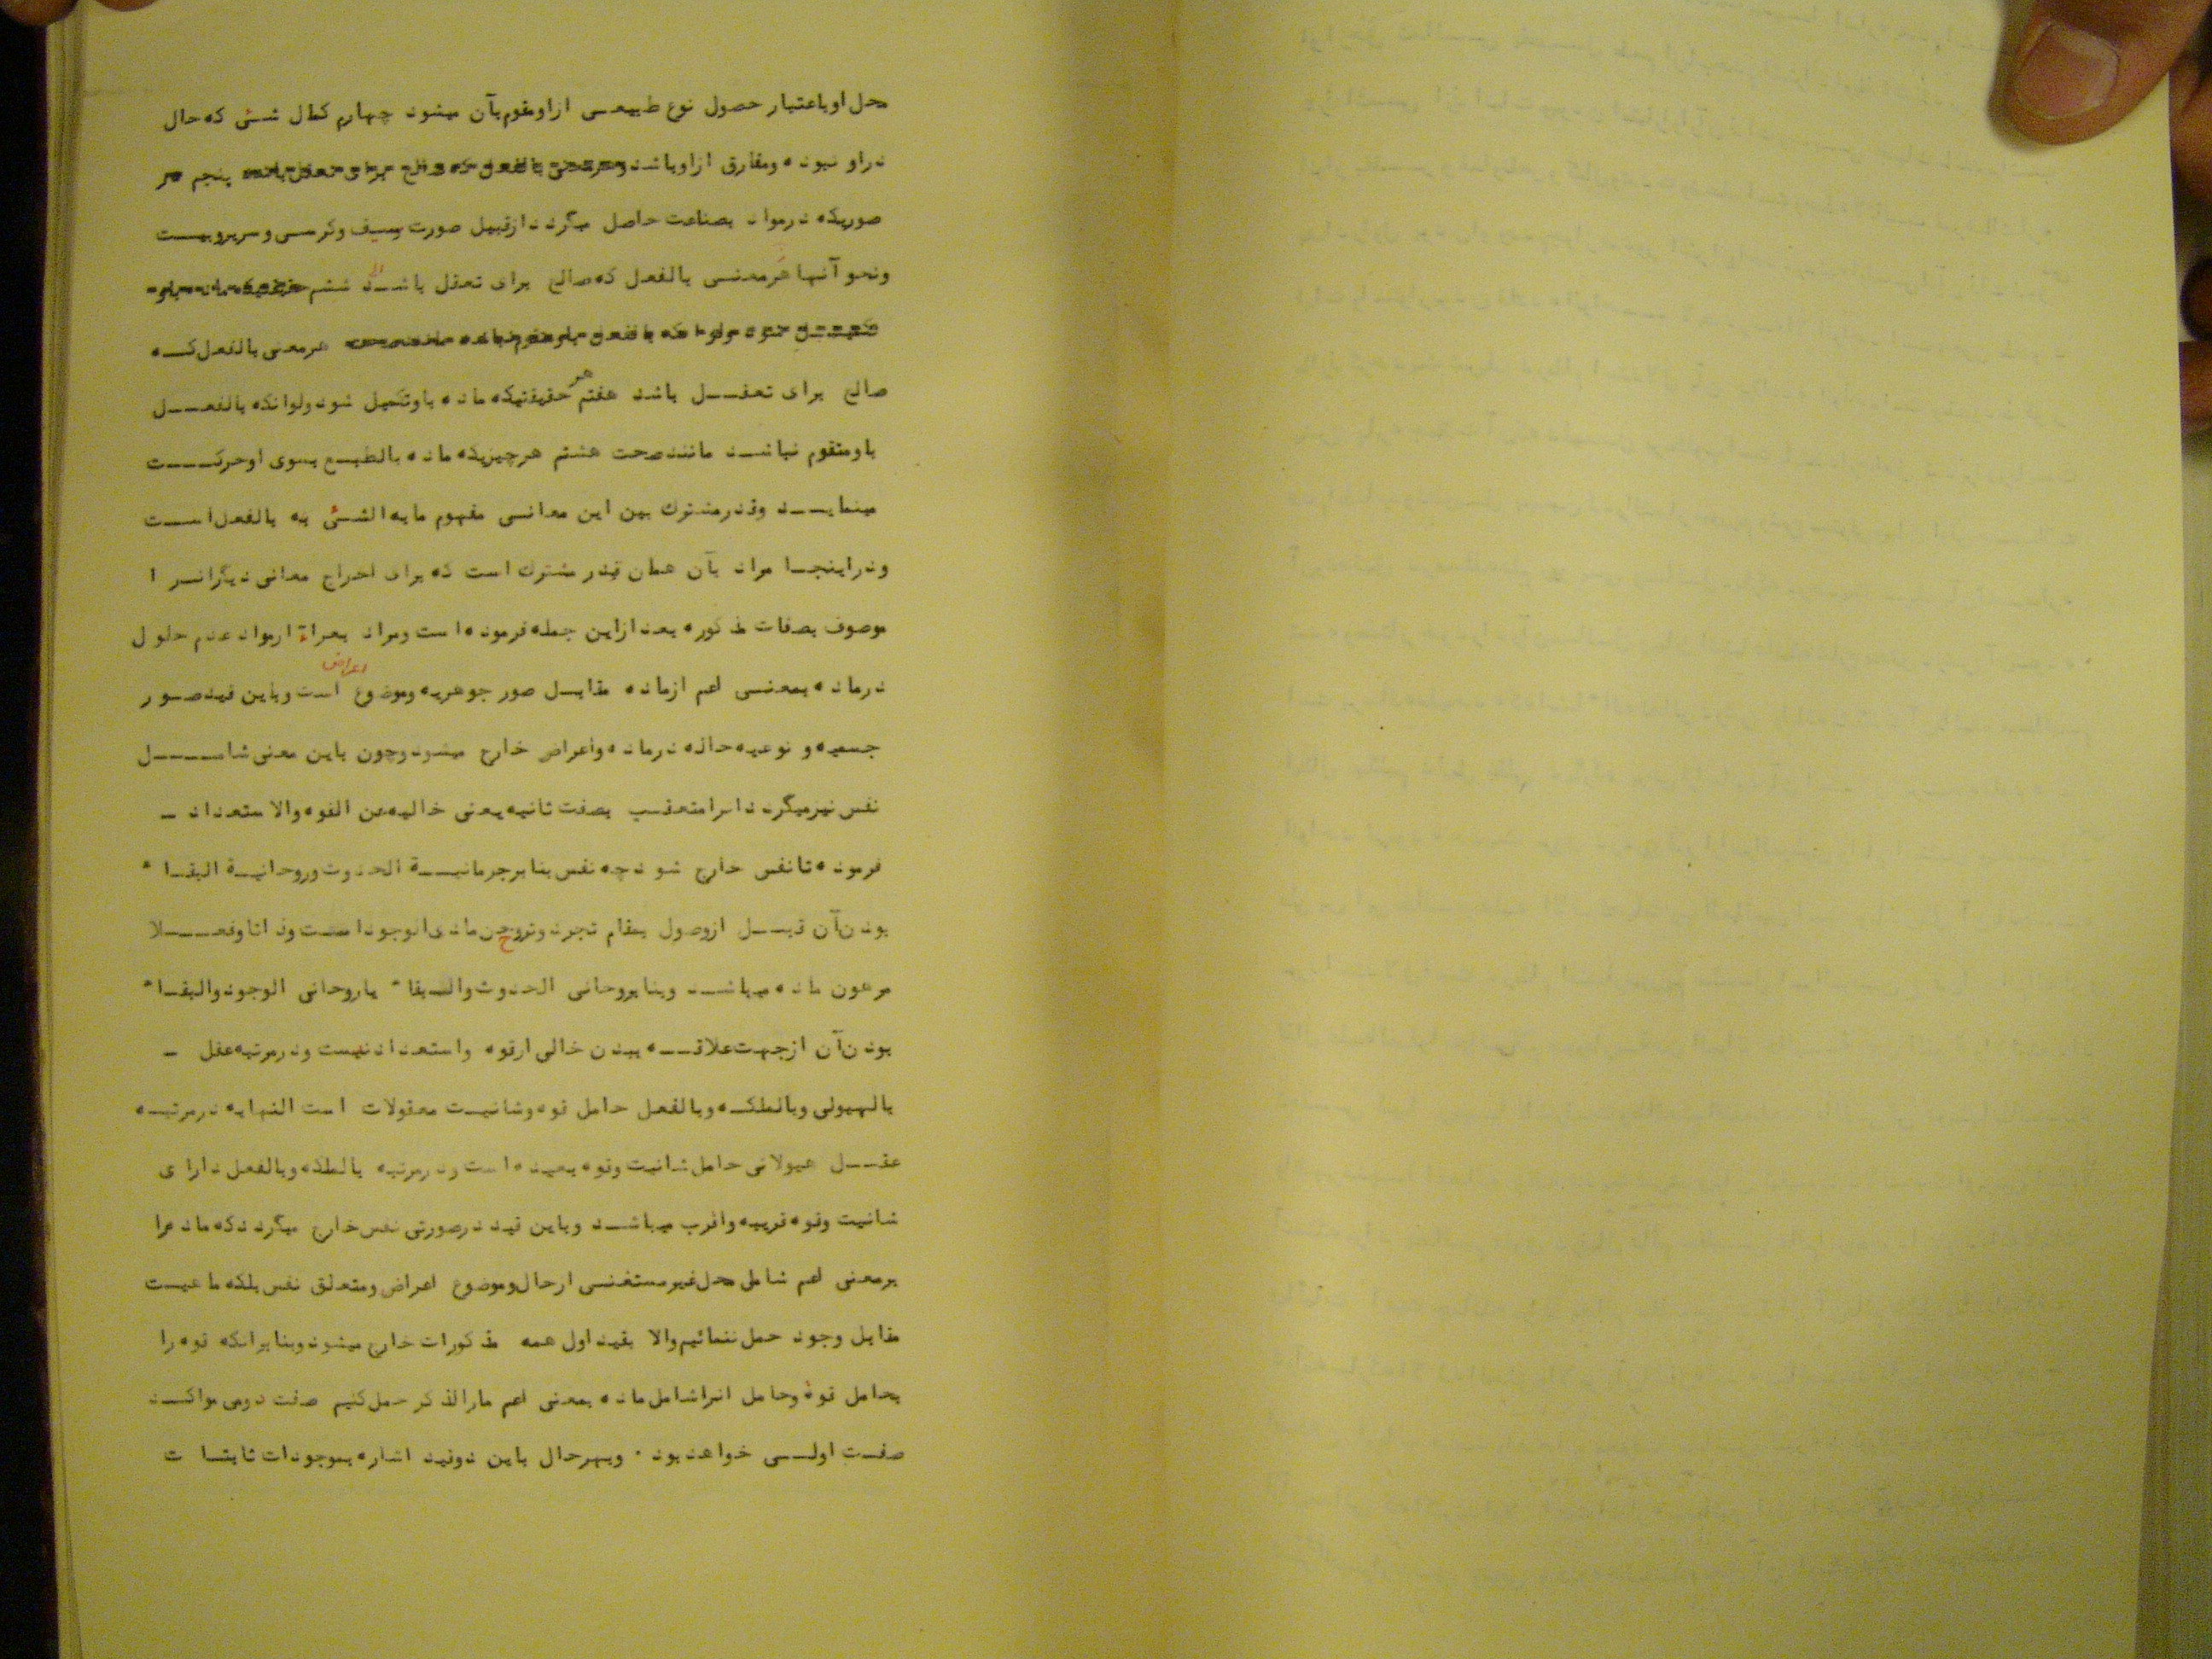 محل او باعتبار حصول نوع طبیعی از او متقوم بآن میشود چهارم کمال شئی که حال
در او نبوده و مفارق از او باشد پنجم هر
صوریکه در مواد بصناعت حاصل میگردد از قبیل صورت سیف و کرسی و سریر و بیت
و نحو آنها هر معنی بالفعل که صالح برای تعقل باشد ششم
هر معنی بالفعل که
صالح برای تعقل باشد هفتم هر حقیقتیکه ماده باو تکمیل شود ولو انکه بالفعل
باو متقوم نباشد مانند صحت هشتم هر چیزیکه ماده بالطبع بسوی او حرکت
مینماید و قدر مشترك بین این معانی مفهوم ما به الشئ به بالفعل است
و در اینجا مراد بآن همان قدر مشترك است که برای اخراج معانی دیگر انرا
موصوف بصفات مذکوره بعد از این جمله فرموده است و مراد بعراة از مواد عدم حلول
در ماده بمعنی اعم از ماده مقابل صور جوهریه و موضوع اعراض است و باین قید صور
جسمیه و نوعیه حاله در ماده و اعراض خارج میشود و چون باین معنی شامل
نفس نیز میگردد انرا متعقب بصفت ثانیه یعنی خالیه عن القوه والاستعداد -
فرموده تا نفس خارج شود چه نفس بنا بر جرمانیة الحدوث و روحانیة البقاء
بودن آن قبل از وصول بمقام تجرد و تروح مادی الوجود است و ذاتا و فعلا
مرهون ماده میباشد و بنا بر روحانی الحدوث والبقاء یا روحانی الوجود والبقاء
بودن آن از جهت علاقه ببدن خالی از قوه و استعداد نیست و در مرتبه عقل -
بالهیولی و بالملکه و بالفعل حامل قوه و شانیت معقولات است النهایه در مرتبه
عقل هیولانی حامل شانیت و قوه بعیده است و در مرتبه بالملکه و بالفعل دارای
شانیت و قوه قریبه و اقرب میباشد و باین قید در صورتی نفس خارج میگردد که ماده را
بر معنی اعم شامل محل غیر مستغنی از حال و موضوع اعراض و متعلق نفس بلکه ماهیت
مقابل وجود حمل ننمائیم والا بقید اول همه مذکورات خارج میشود و بنا بر انکه قوه را
بحامل قوة و حامل انرا شامل ماده بمعنی اعم مار الذکر حمل کنیم صفت دومی مواکد
صفت اولی خواهد بود . و بهر حال باین دو قید اشاره بموجودات ثابتات